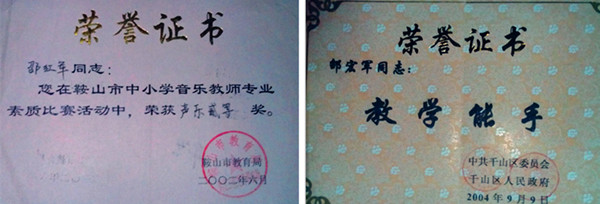 荣誉证书
同志：
您在鞍山市中小学音乐教师专业
素质比赛活动中，荣获声乐贰等奖。
鞍山市教育局
二〇〇二年六月
荣誉证书
邹宏军同志：
教学能手
中共千山区委员会
千山区人民政府
2004年9月9日